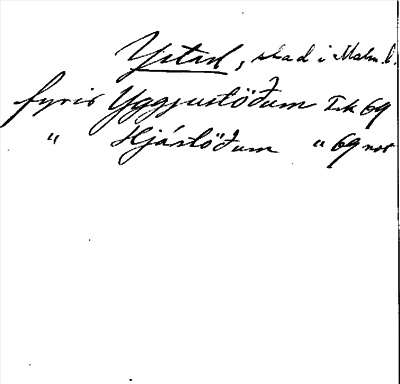 Ystad, stad i Malm. l.
fyris Yggjustöðum Tk 69
" Hjástöðum " 69 nor